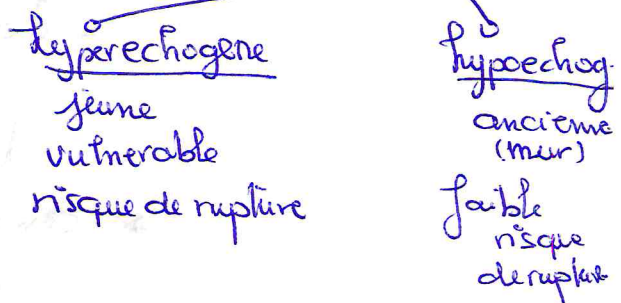 hyperechogene
jeune
vulnerable
risque de rupture
hypoechog.
ancienne
(mur)
faible
risque
de rupture